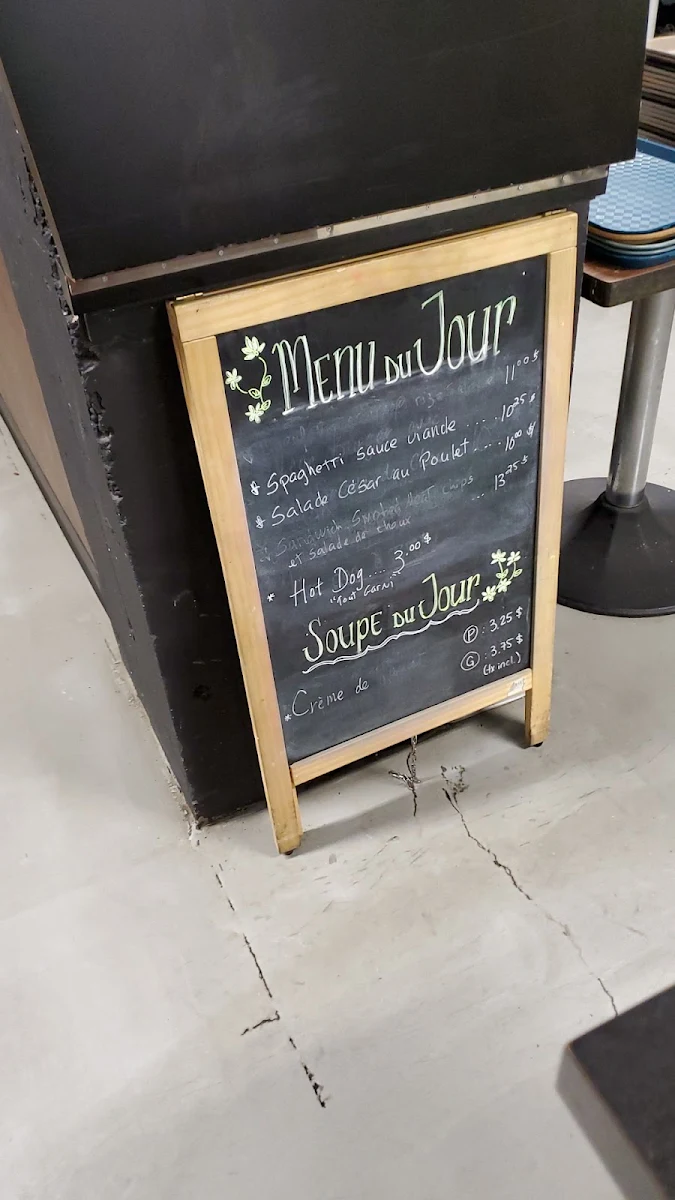 MENU DU JOUR
11.00 $
* Spaghetti Sauce Viande .... 10.25 $
* Salade César au Poulet .... 10.00 $
* Sandwich Smoked Meat ... 13.25 $
et salade de choux
* Hot Dog .... 3.00 $
"Tout Garni"
SOUPE DU JOUR
P : 3.25 $
G : 3.75 $
(tx incl.)
* Crème de